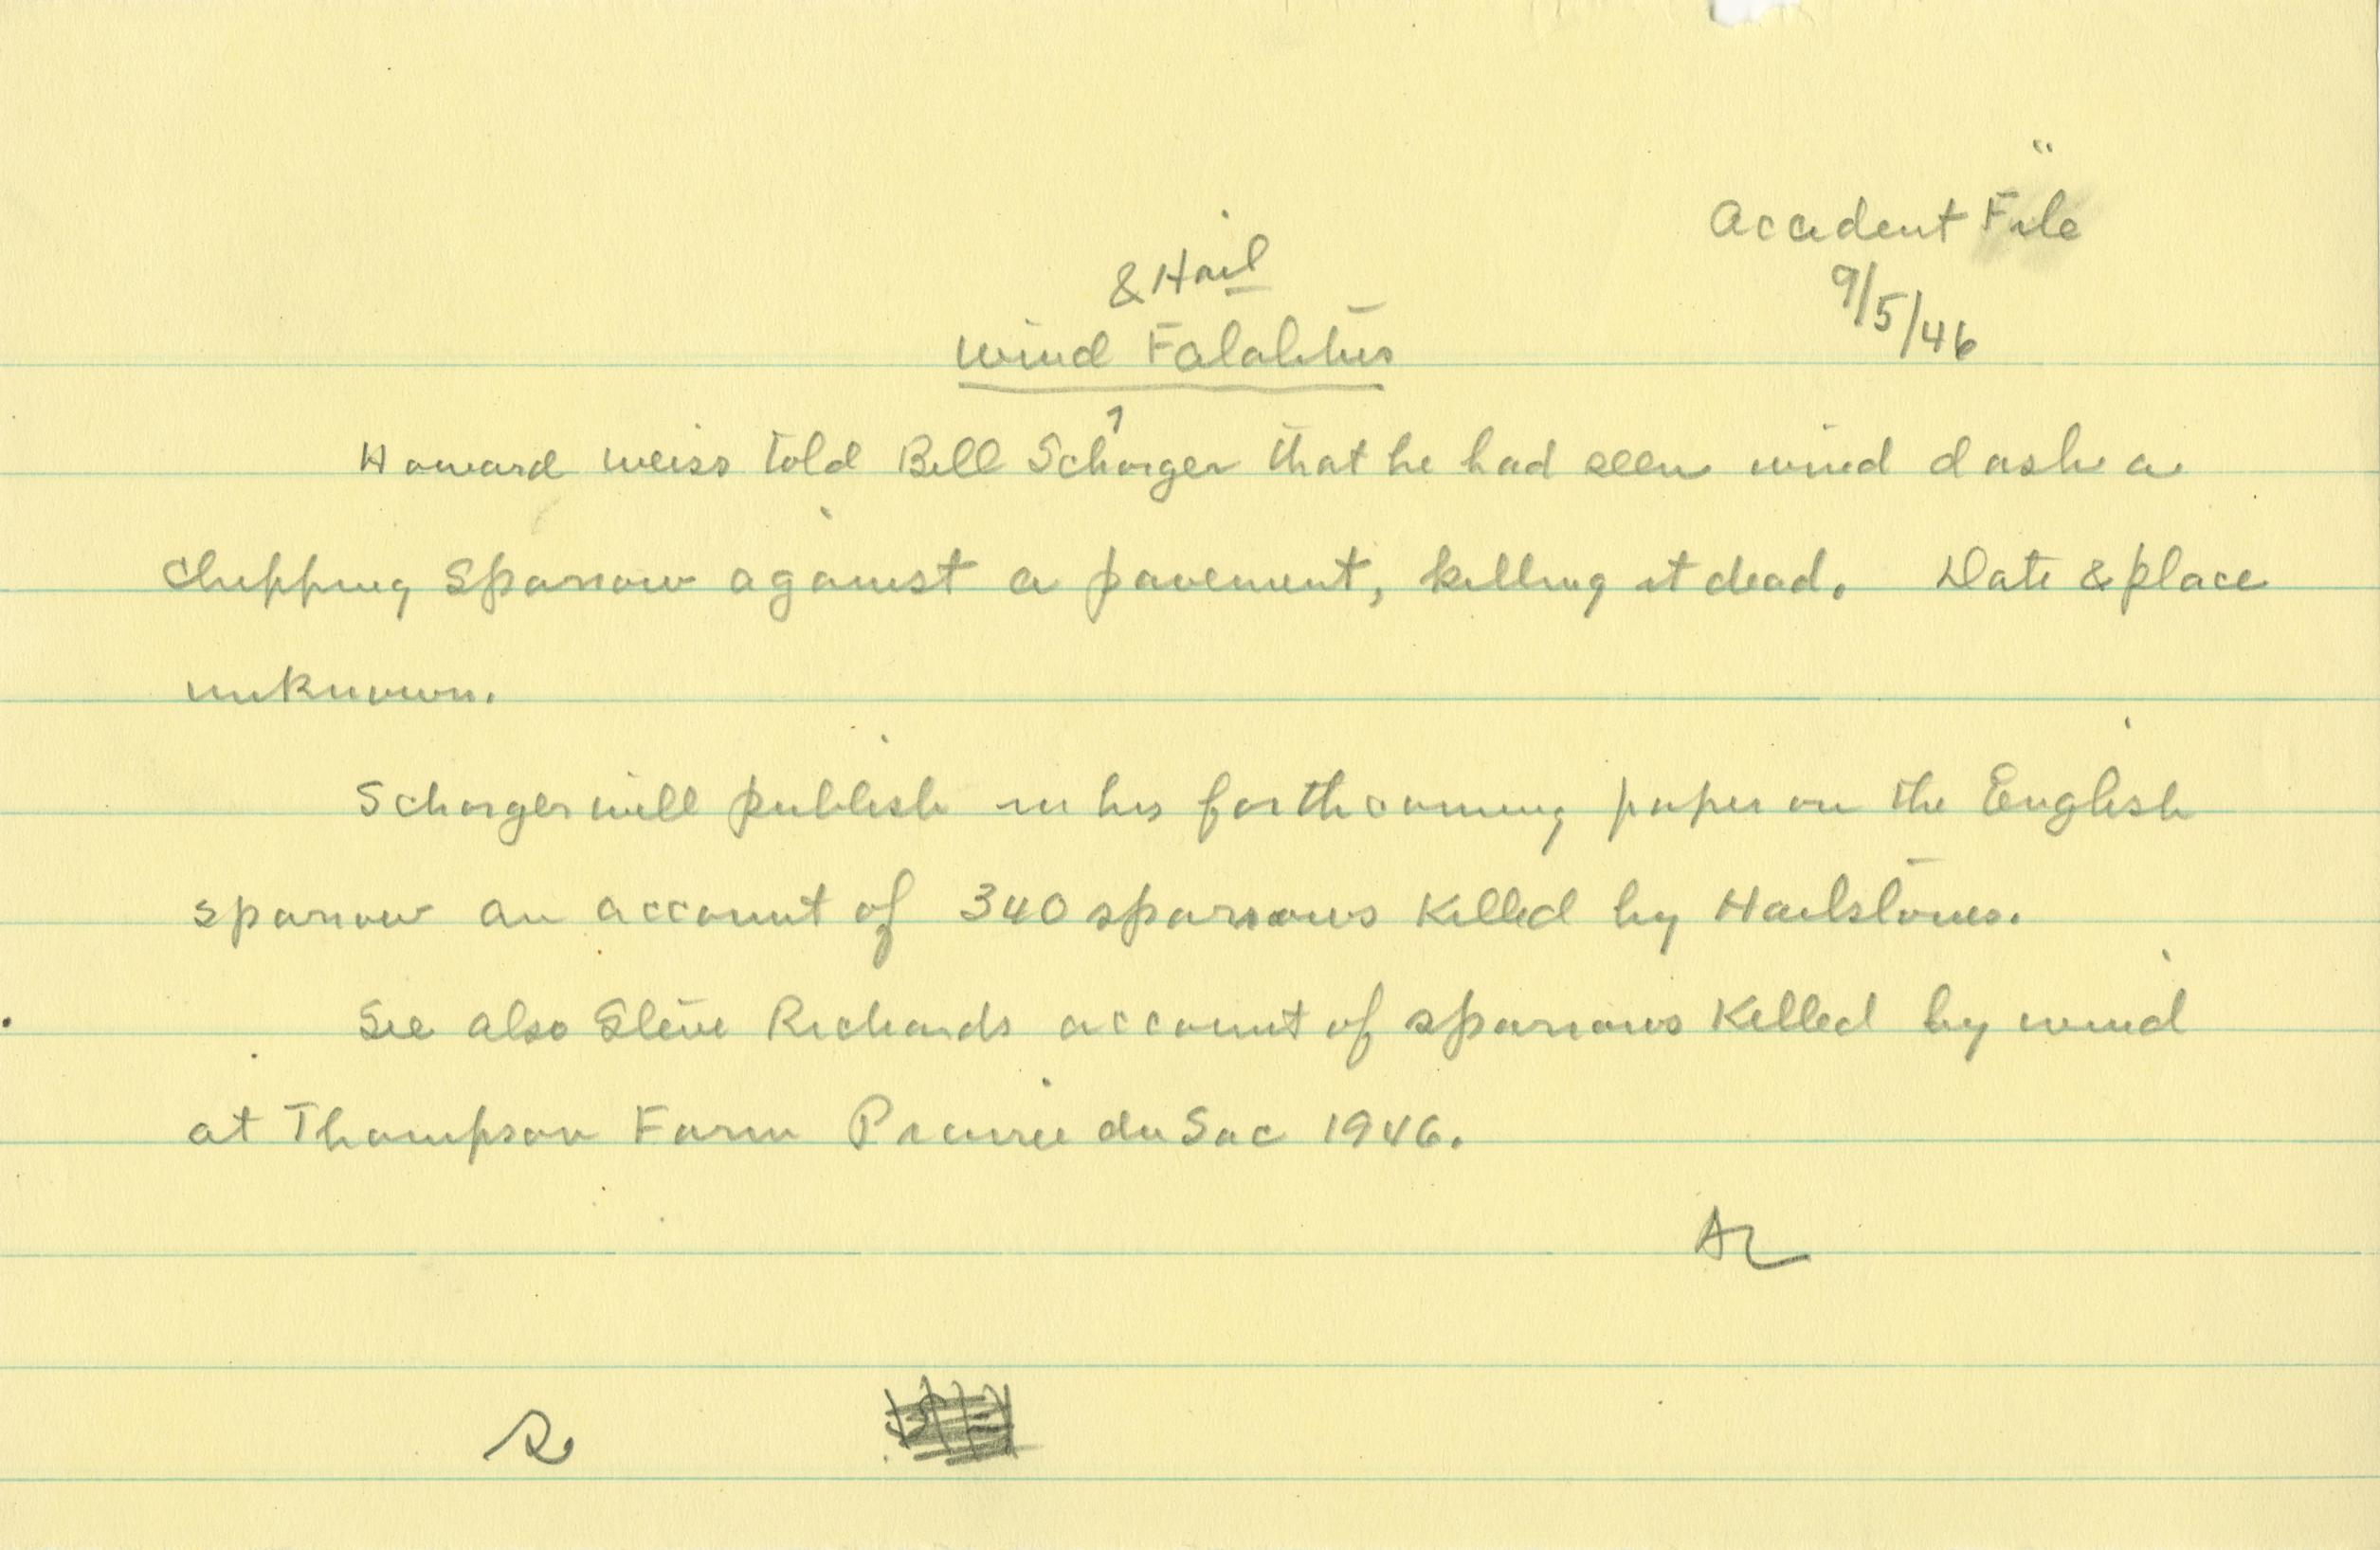 Accident File
9/5/46
& Hail
Wind Fatalities
Howard Weiss told Bill Schorger that he had seen wind dash a
Chipping Sparrow against a pavement, killing it dead. Date & place
unknown.
Schorger will publish in his forthcoming paper on the English
sparrow an account of 340 sparrows killed by Hailstones.
See also Steve Richards account of sparrows killed by wind
at Thompson Farm Prairie du Sac 1946.
AL